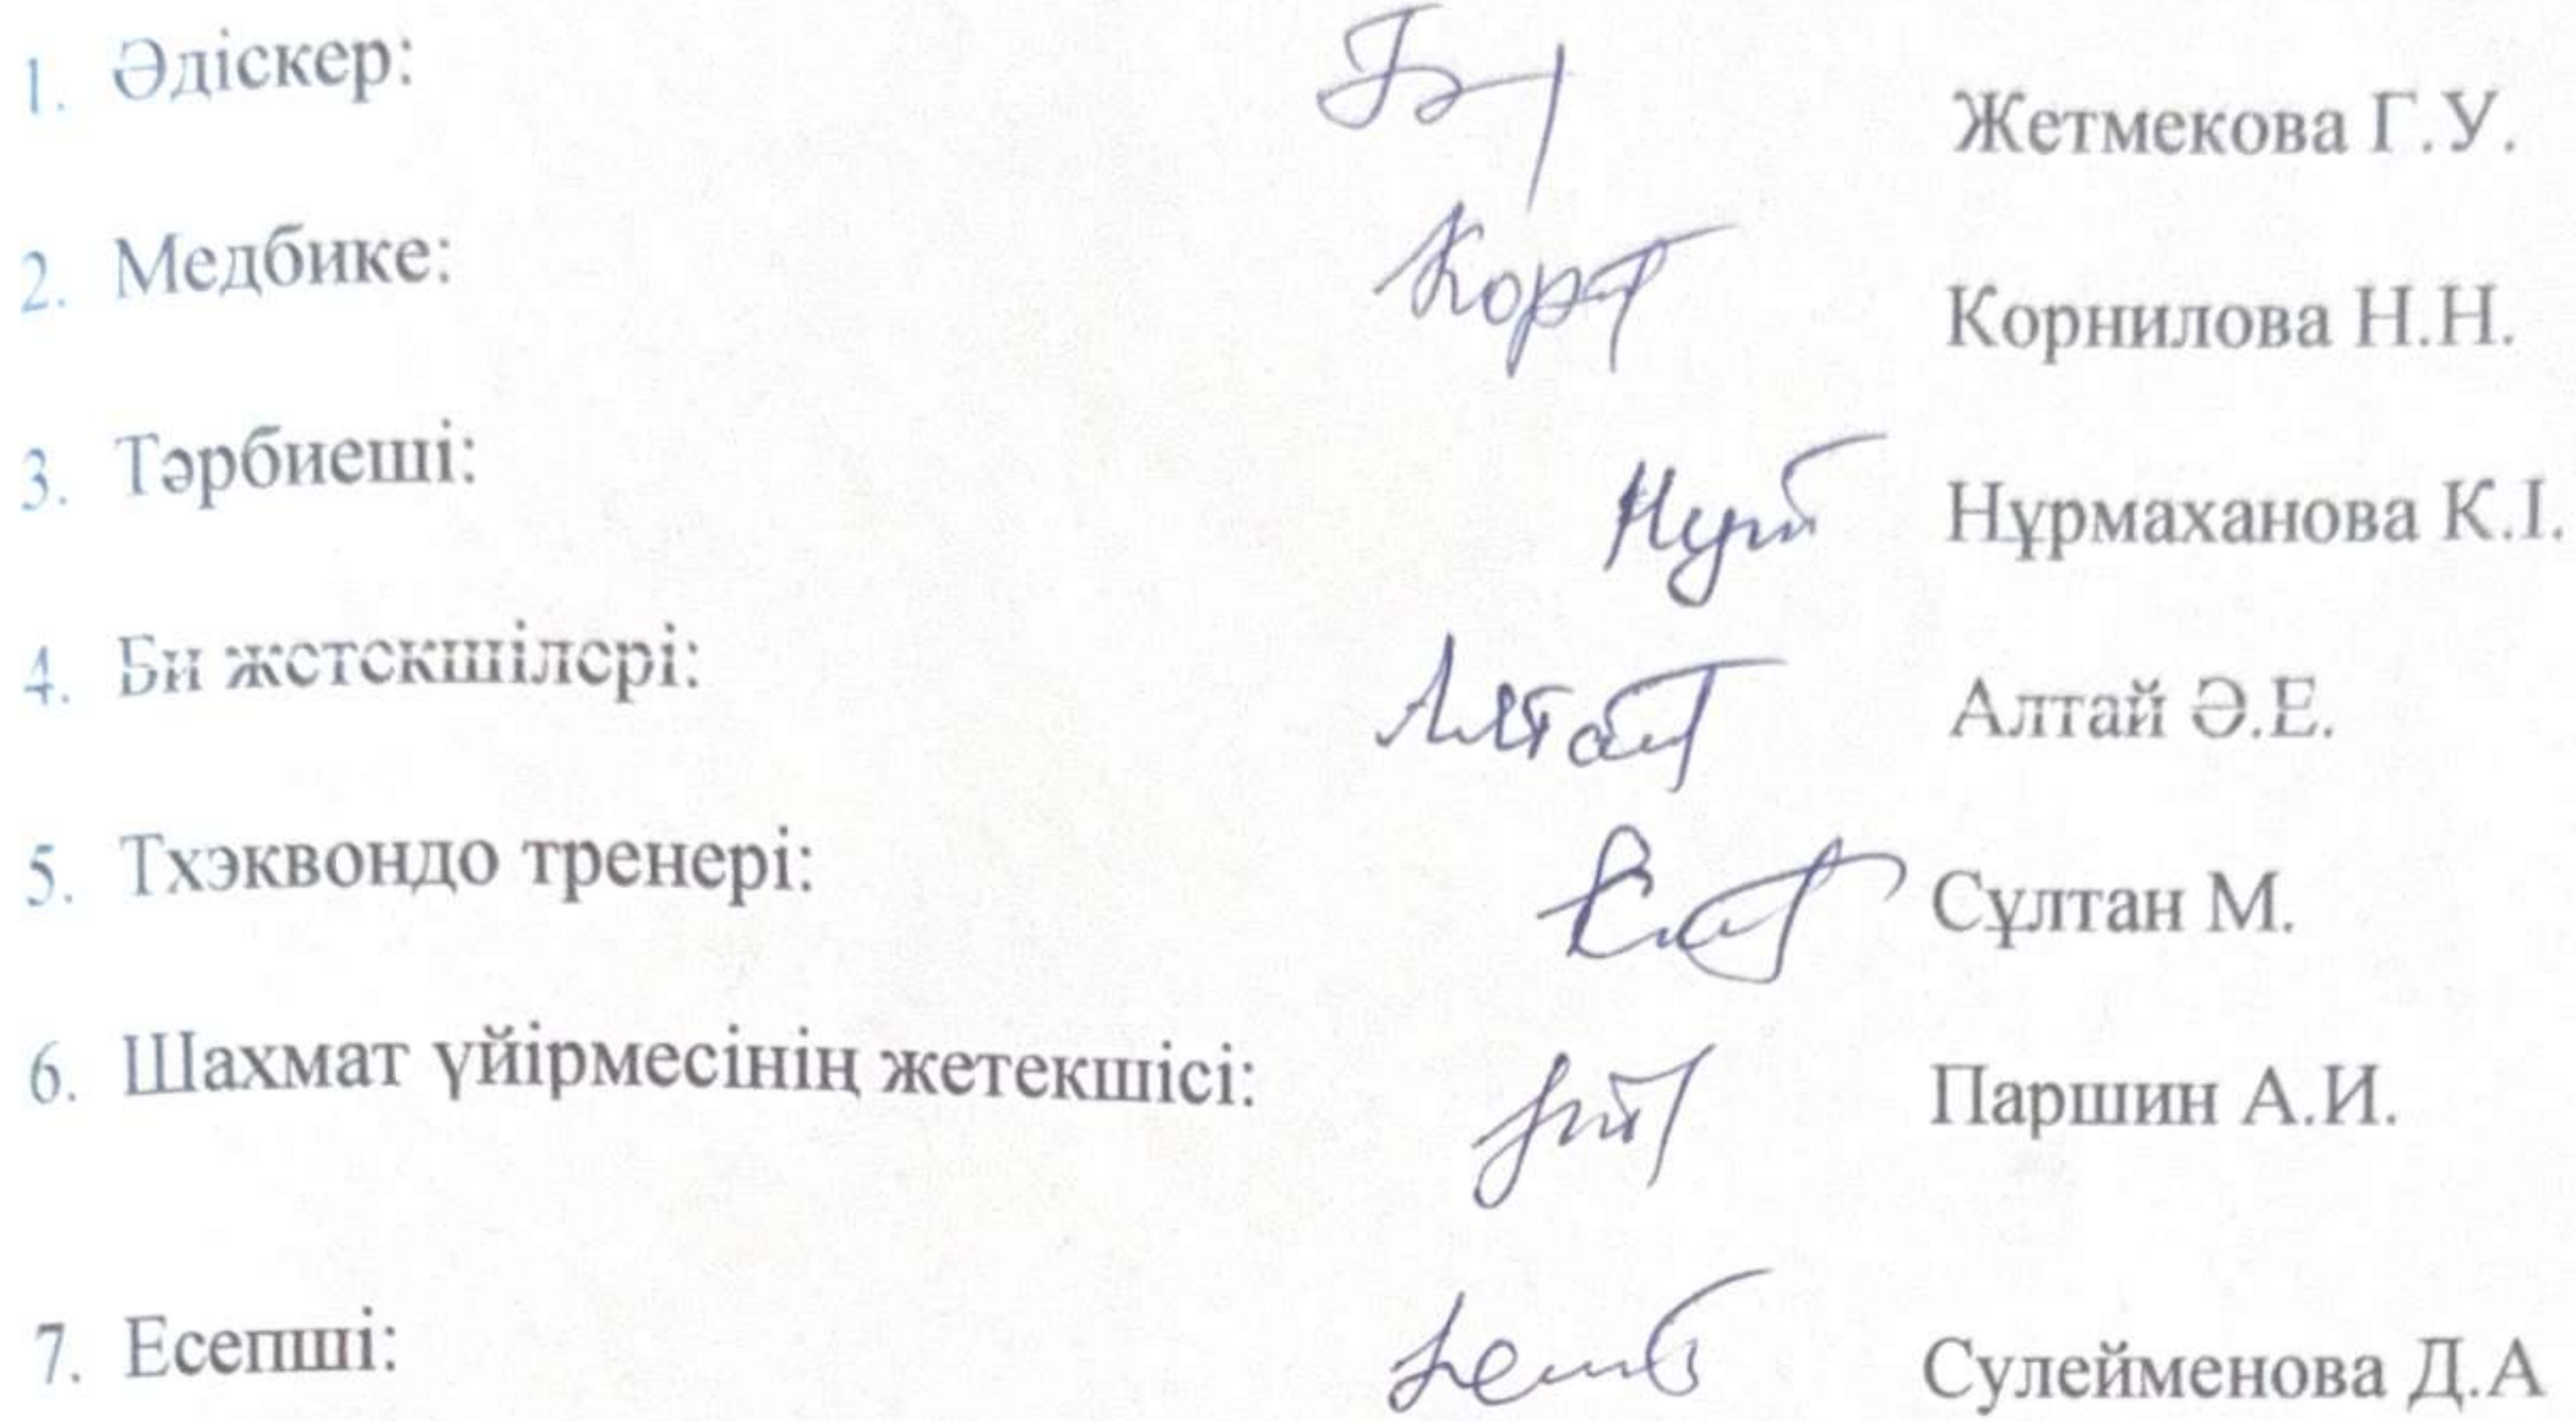 1. Әдіскер: Жетмекова Г.У.
2. Медбике: Корнилова Н.Н.
3. Тәрбиеші: Нұрмаханова К.І.
4. Би жетекшілері: Алтай Ә.Е.
5. Тхэквондо тренері: Сұлтан М.
6. Шахмат үйірмесінің жетекшісі: Паршин А.И.
7. Есепші: Сулейменова Д.А